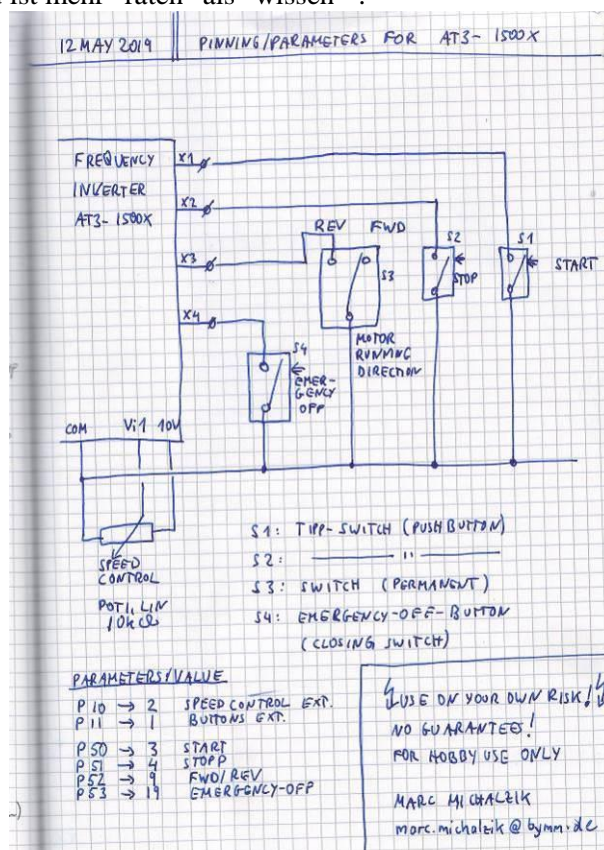 ist mehr "raten" als "wissen".
12 MAY 2019
PINNING/PARAMETERS FOR AT3-1500X
FREQUENCY
INVERTER
AT3-1500X
X1
X2
X3
X4
REV FWD
S3
MOTOR
RUNNING
DIRECTION
S2
STOP
S1
START
S4
EMER-
GENCY
OFF
COM Vi1 10V
SPEED
CONTROL
POTI, LIN
10kΩ
S1: TIPP-SWITCH (PUSHBUTTON)
S2: ——— " ———
S3: SWITCH (PERMANENT)
S4: EMERGENCY-OFF-BUTTON
(CLOSING SWITCH)
PARAMETERS/VALUE
P10 → 2 SPEED CONTROL EXT.
P11 → 1 BUTTONS EXT.
P50 → 3 START
P51 → 4 STOPP
P52 → 9 FWD/REV
P53 → 19 EMERGENCY-OFF
USE ON YOUR OWN RISK!
NO GUARANTEES!
FOR HOBBY USE ONLY
MARC MICHALZIK
marc.michalzik@bymm.de